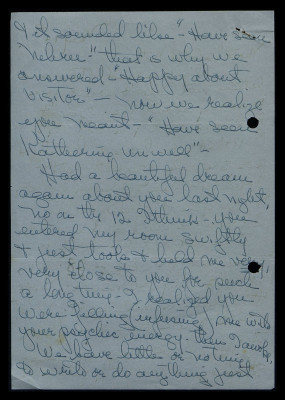 & it sounded like - "Have seen
" that is why we
answered - "Happy about
visitor" - now we realize
you meant - "Have seen
Katherine unwell" -
Had a beautiful dream
again about you last night,
no on the 12 I think - you
entered my room swiftly
& just took & held me very,
very close to you for such
a long time - I realized you
were filling me with
your psychic energy - then
We have little or nothing
to write or do anything just